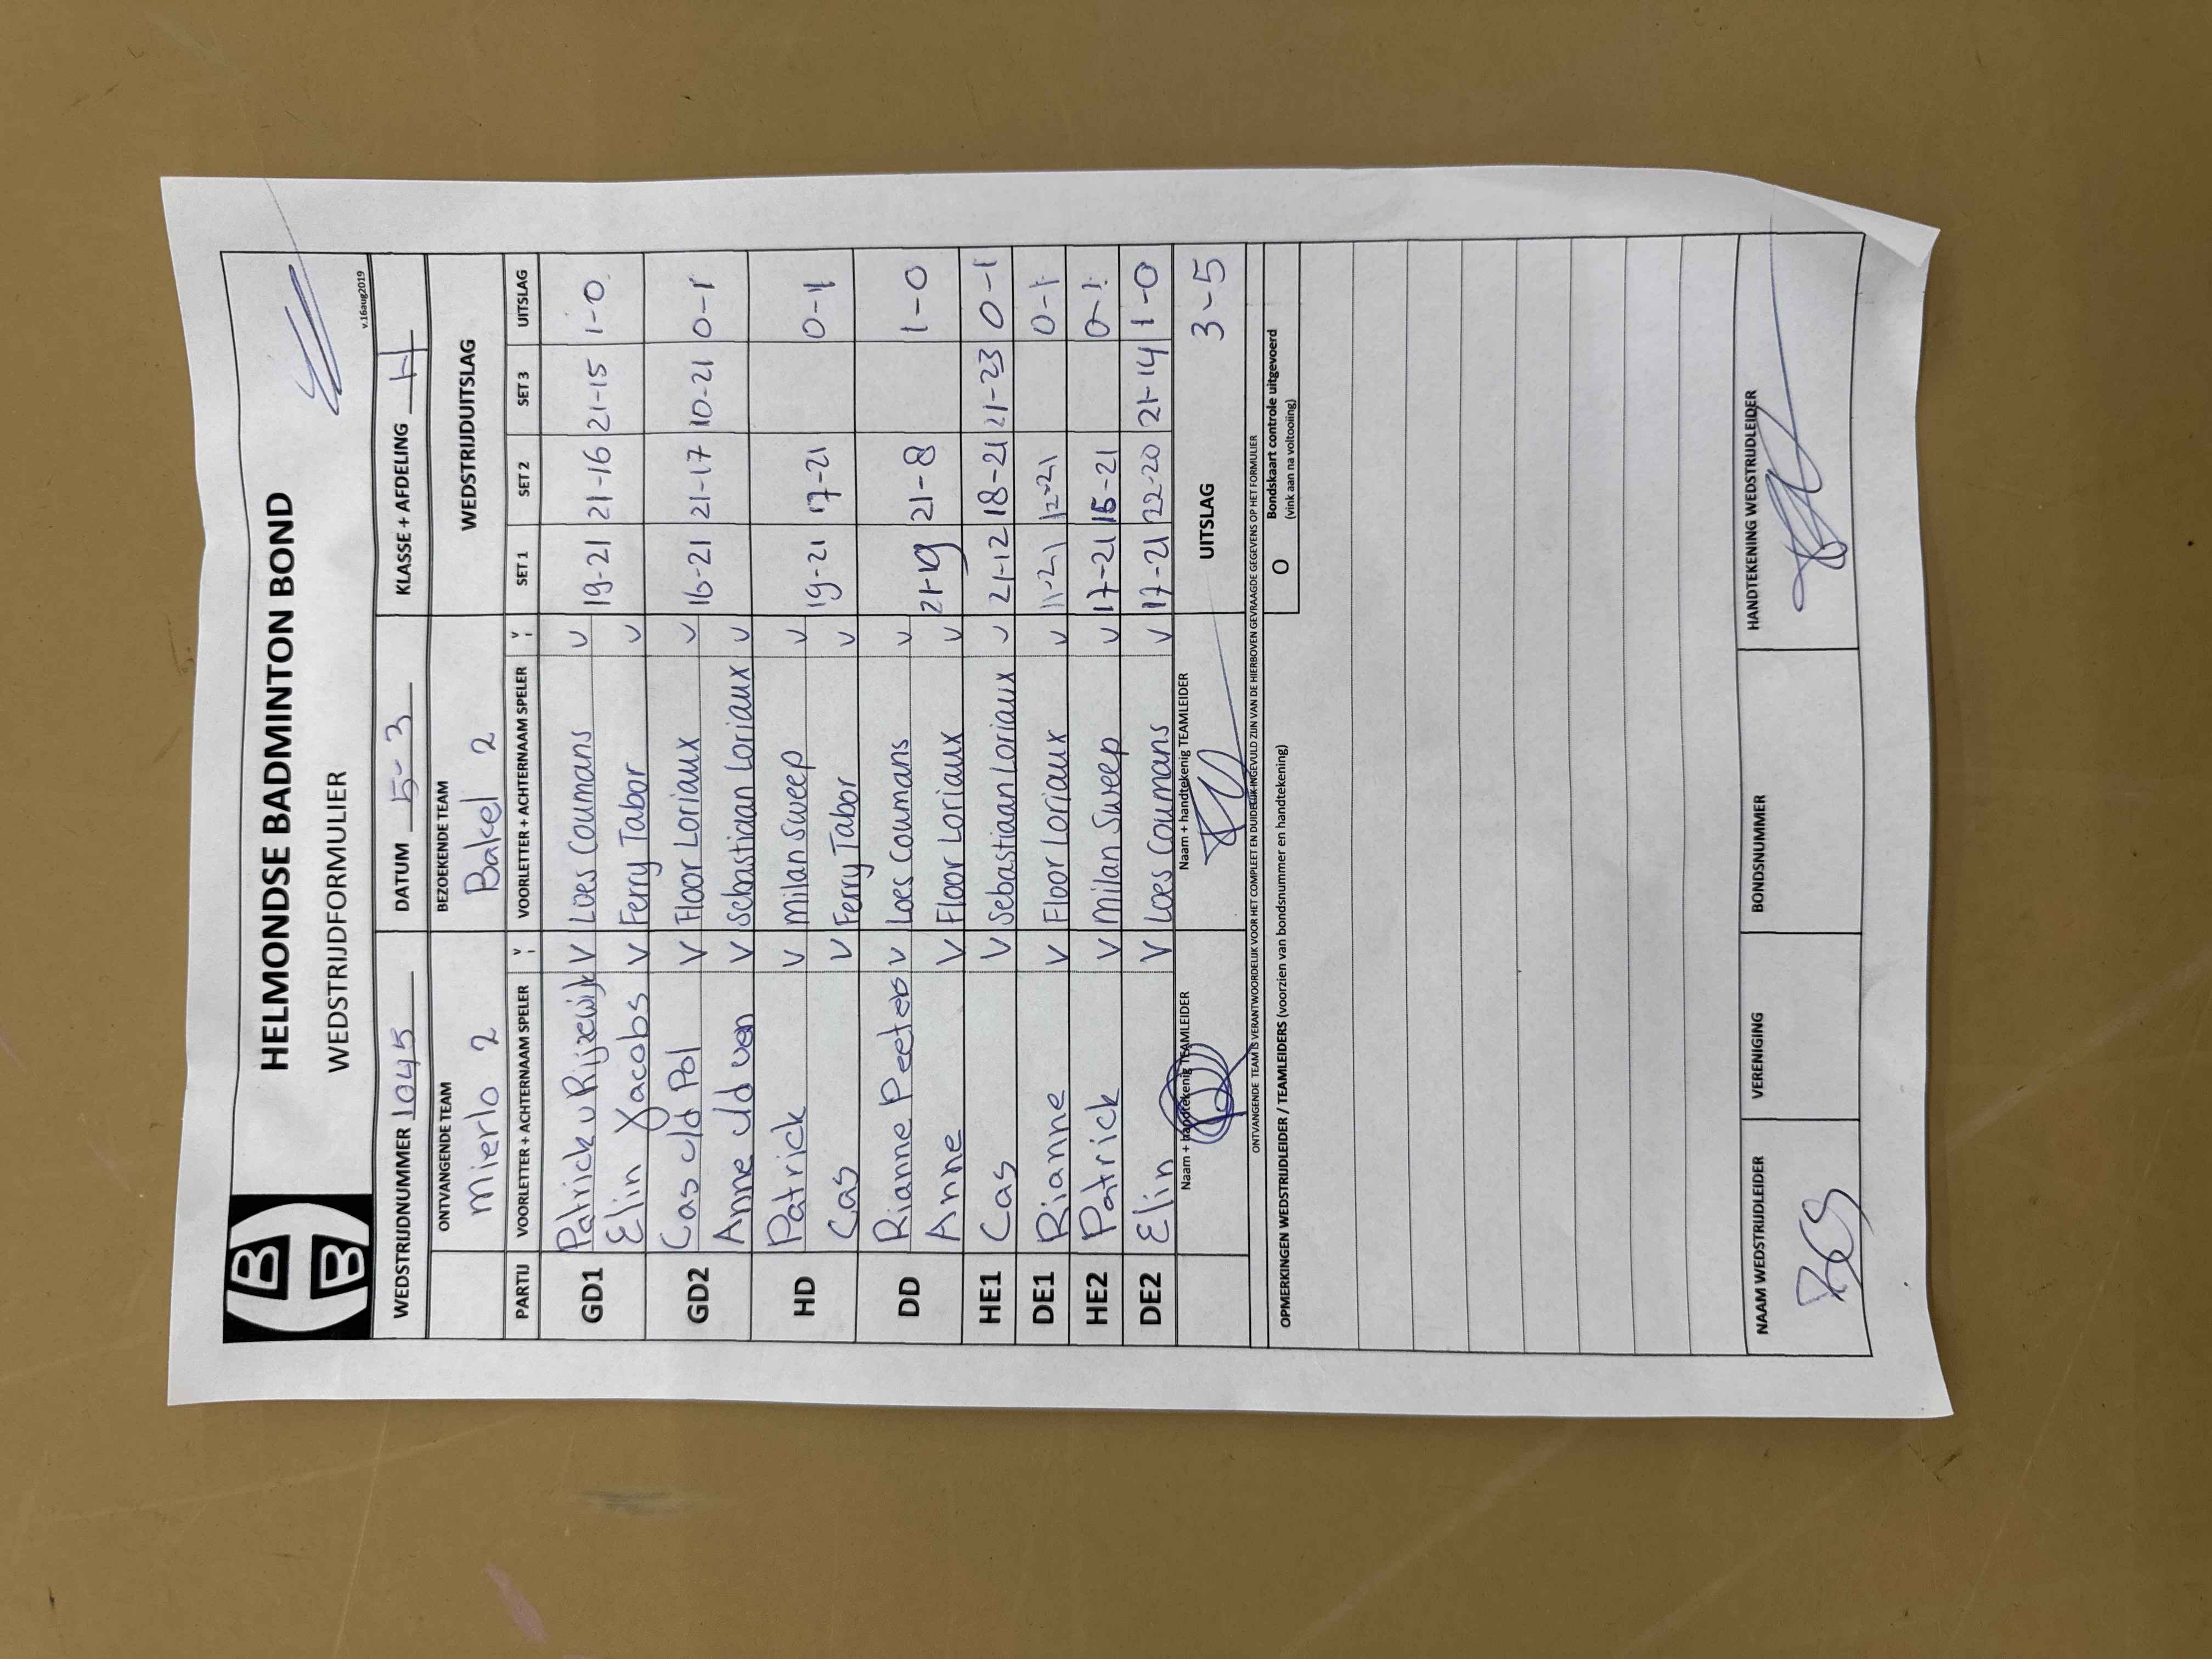 HELMONDSE BADMINTON BOND
WEDSTRIJDFORMULIER
v.16aug2019
WEDSTRIJDNUMMER 1045 DATUM 5-3 KLASSE + AFDELING
ONTVANGENDE TEAM BEZOEKENDE TEAM WEDSTRIJDUITSLAG
Mierlo 2 Bakel 2
PARTIJ VOORLETTER + ACHTERNAAM SPELER V VOORLETTER + ACHTERNAAM SPELER V SET 1 SET 2 SET 3 UITSLAG
GD1 Patrick v Rijsewijk V Loes Coumans V 19-21 21-16 21-15 1-0
Elin Jacobs V Ferry Tabor V
GD2 Cas v/d Pol V Floor Loriaux V 16-21 21-17 10-21 0-1
Anne v/d ven V Sebastiaan Loriaux V
HD Patrick V Milan Sweep V 19-21 17-21 0-1
Cas V Ferry Tabor V
DD Rianne Peeters V Loes Coumans V 21-19 21-8 1-0
Anne V Floor Loriaux V
HE1 Cas V Sebastiaan Loriaux V 21-12 18-21 21-23 0-1
DE1 Rianne V Floor Loriaux V 11-21 12-21 0-1
HE2 Patrick V Milan Sweep V 17-21 15-21 0-1
DE2 Elin V Loes Coumans V 17-21 22-20 21-14 1-0
Naam + handtekenig TEAMLEIDER Naam + handtekenig TEAMLEIDER UITSLAG 3-5
ONTVANGENDE TEAM IS VERANTWOORDELIJK VOOR HET COMPLEET EN DUIDELIJK INGEVULD ZIJN VAN DE HIERBOVEN GEVRAAGDE GEGEVENS OP HET FORMULIER
OPMERKINGEN WEDSTRIJDLEIDER / TEAMLEIDERS (voorzien van bondsnummer en handtekening) O Bondskaart controle uitgevoerd
(vink aan na voltooiing)
NAAM WEDSTRIJDLEIDER VERENIGING BONDSNUMMER HANDTEKENING WEDSTRIJDLEIDER